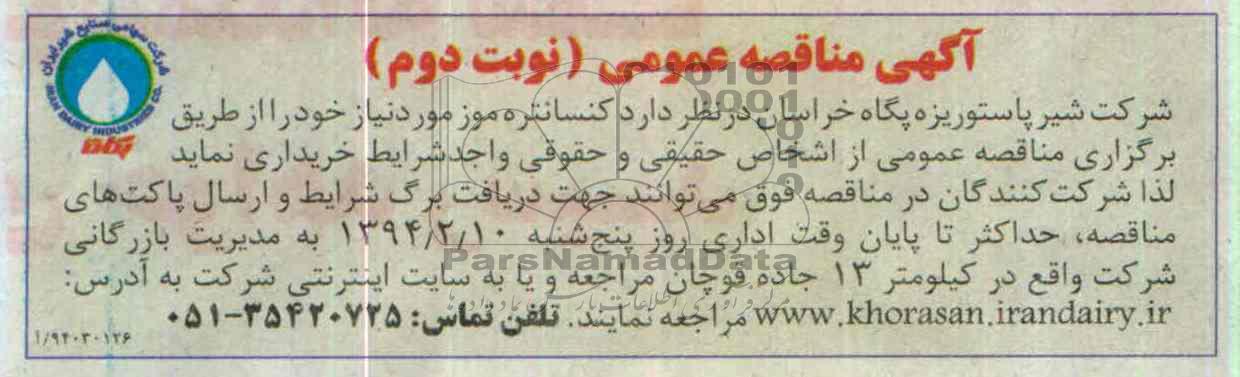 آگهی مناقصه عمومی (نوبت دوم)
شرکت سهامی صنایع شیر ایران
IRAN DAIRY INDUSTRIES CO.
پگاه
شرکت شیر پاستوریزه پگاه خراسان درنظر دارد کنسانتره موز مورد نیاز خود را از طریق
برگزاری مناقصه عمومی از اشخاص حقیقی و حقوقی واجدشرایط خریداری نماید
لذا شرکت‌کنندگان در مناقصه فوق می‌توانند جهت دریافت برگ شرایط و ارسال پاکت‌های
مناقصه، حداکثر تا پایان وقت اداری روز پنج‌شنبه ۱۳۹۴/۲/۱۰ به مدیریت بازرگانی
شرکت واقع در کیلومتر ۱۳ جاده قوچان مراجعه و یا به سایت اینترنتی شرکت به آدرس:
www.khorasan.irandairy.ir مراجعه نمایند. تلفن تماس: ۳۵۴۲۰۷۲۵-۰۵۱
۹۴۰۳۰۱۲۶/آ
ParsNamadData